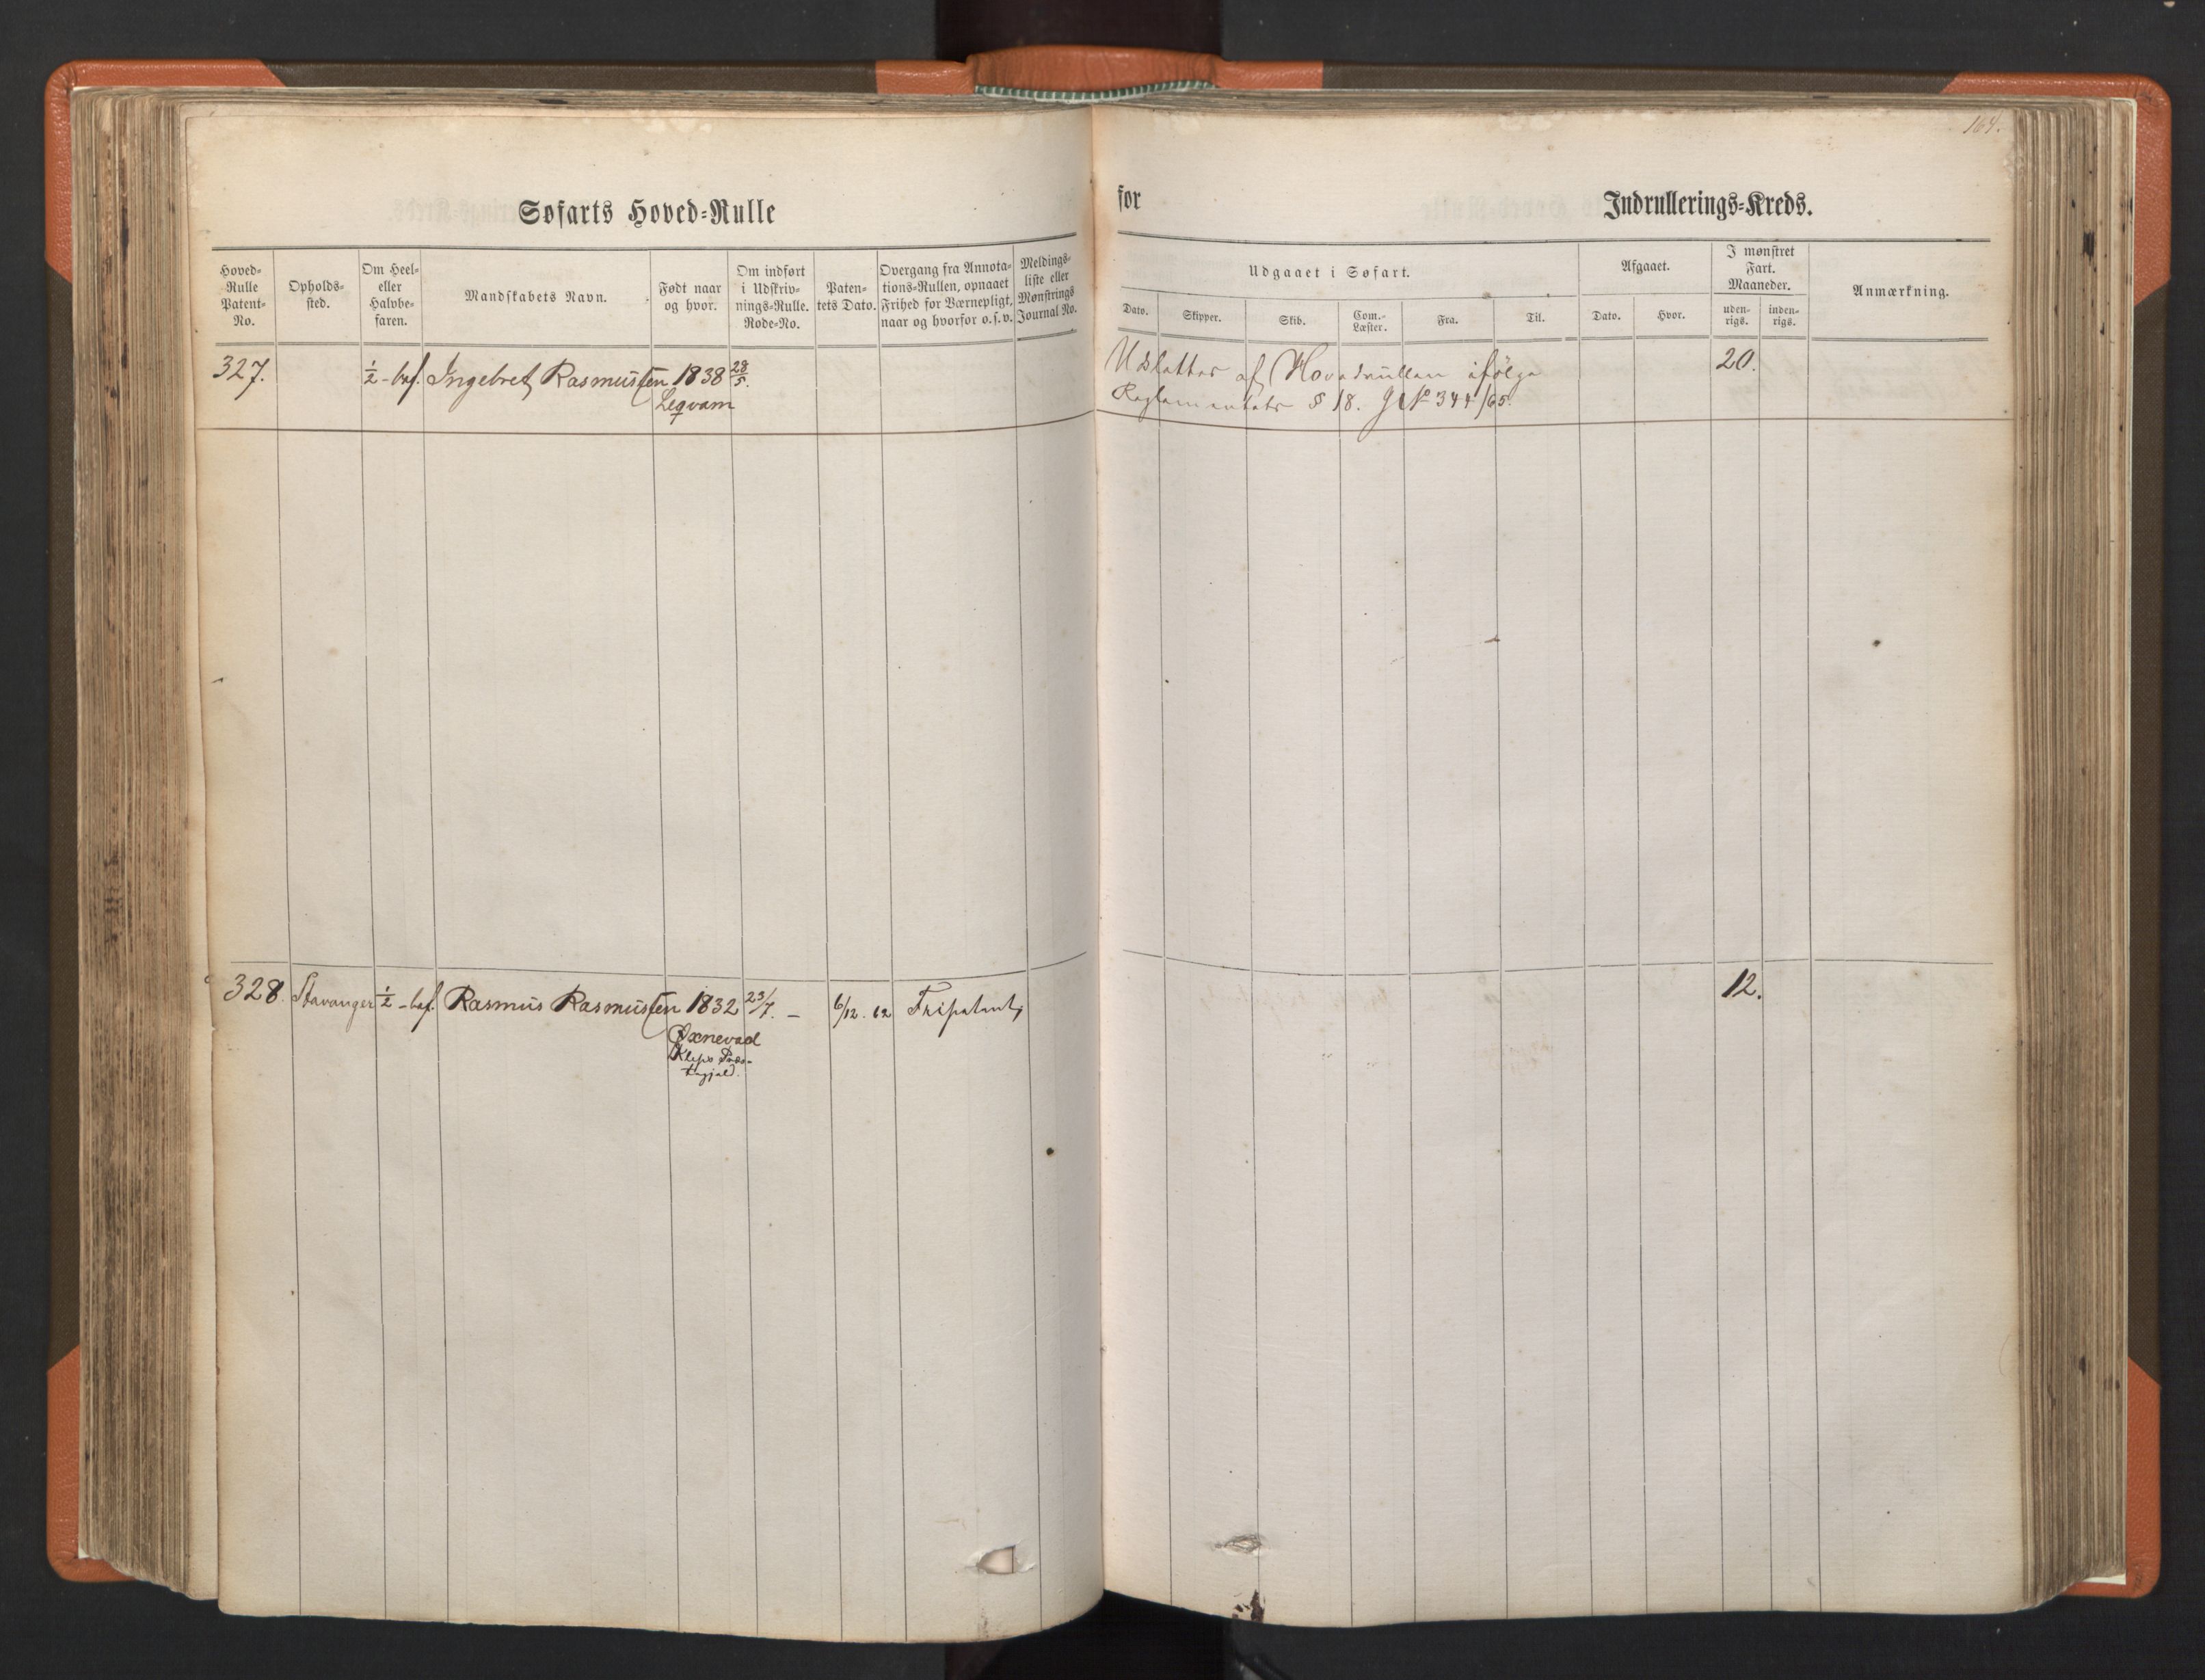 164.
Søfarts Hoved=Rulle
for
Indrullerings=Kreds.
Hoved=
Rulle
Patent=
No.
Opholds=
sted.
Om Heel=
eller
Halvbe=
faren.
Mandskabets Navn.
Født naar
og hvor.
Om indført
i Udskriv=
nings=Rulle.
Rode=No.
Paten=
tets Dato.
Overgang fra Annota=
tions=Rullen, opnaaet
Frihed for Værnepligt,
naar og hvorfor o. s. v.
Meldings=
liste eller
Mønstrings
Journal No.
Udgaaet i Søfart.
Dato.
Skipper.
Skib.
Com.=
Læster.
Fra.
Til.
Afgaaet.
Dato.
Hvor.
I mønstret
Fart.
Maaneder.
uden=
rigs.
inden=
rigs.
Anmærkning.
327. ½ - bef. Ingebret Rasmussen 1838 28/5.
Leqvam
Udslettes af Hovedrullen ifølge 20.
Reglementets § 18. J No 344/65.
328. Stavanger ½ - bef. Rasmus Rasmussen 1832 23/7. - 6/12. 62 Fripatent, 12.
Øxnevad
Kleps Præs=
tegjæld.